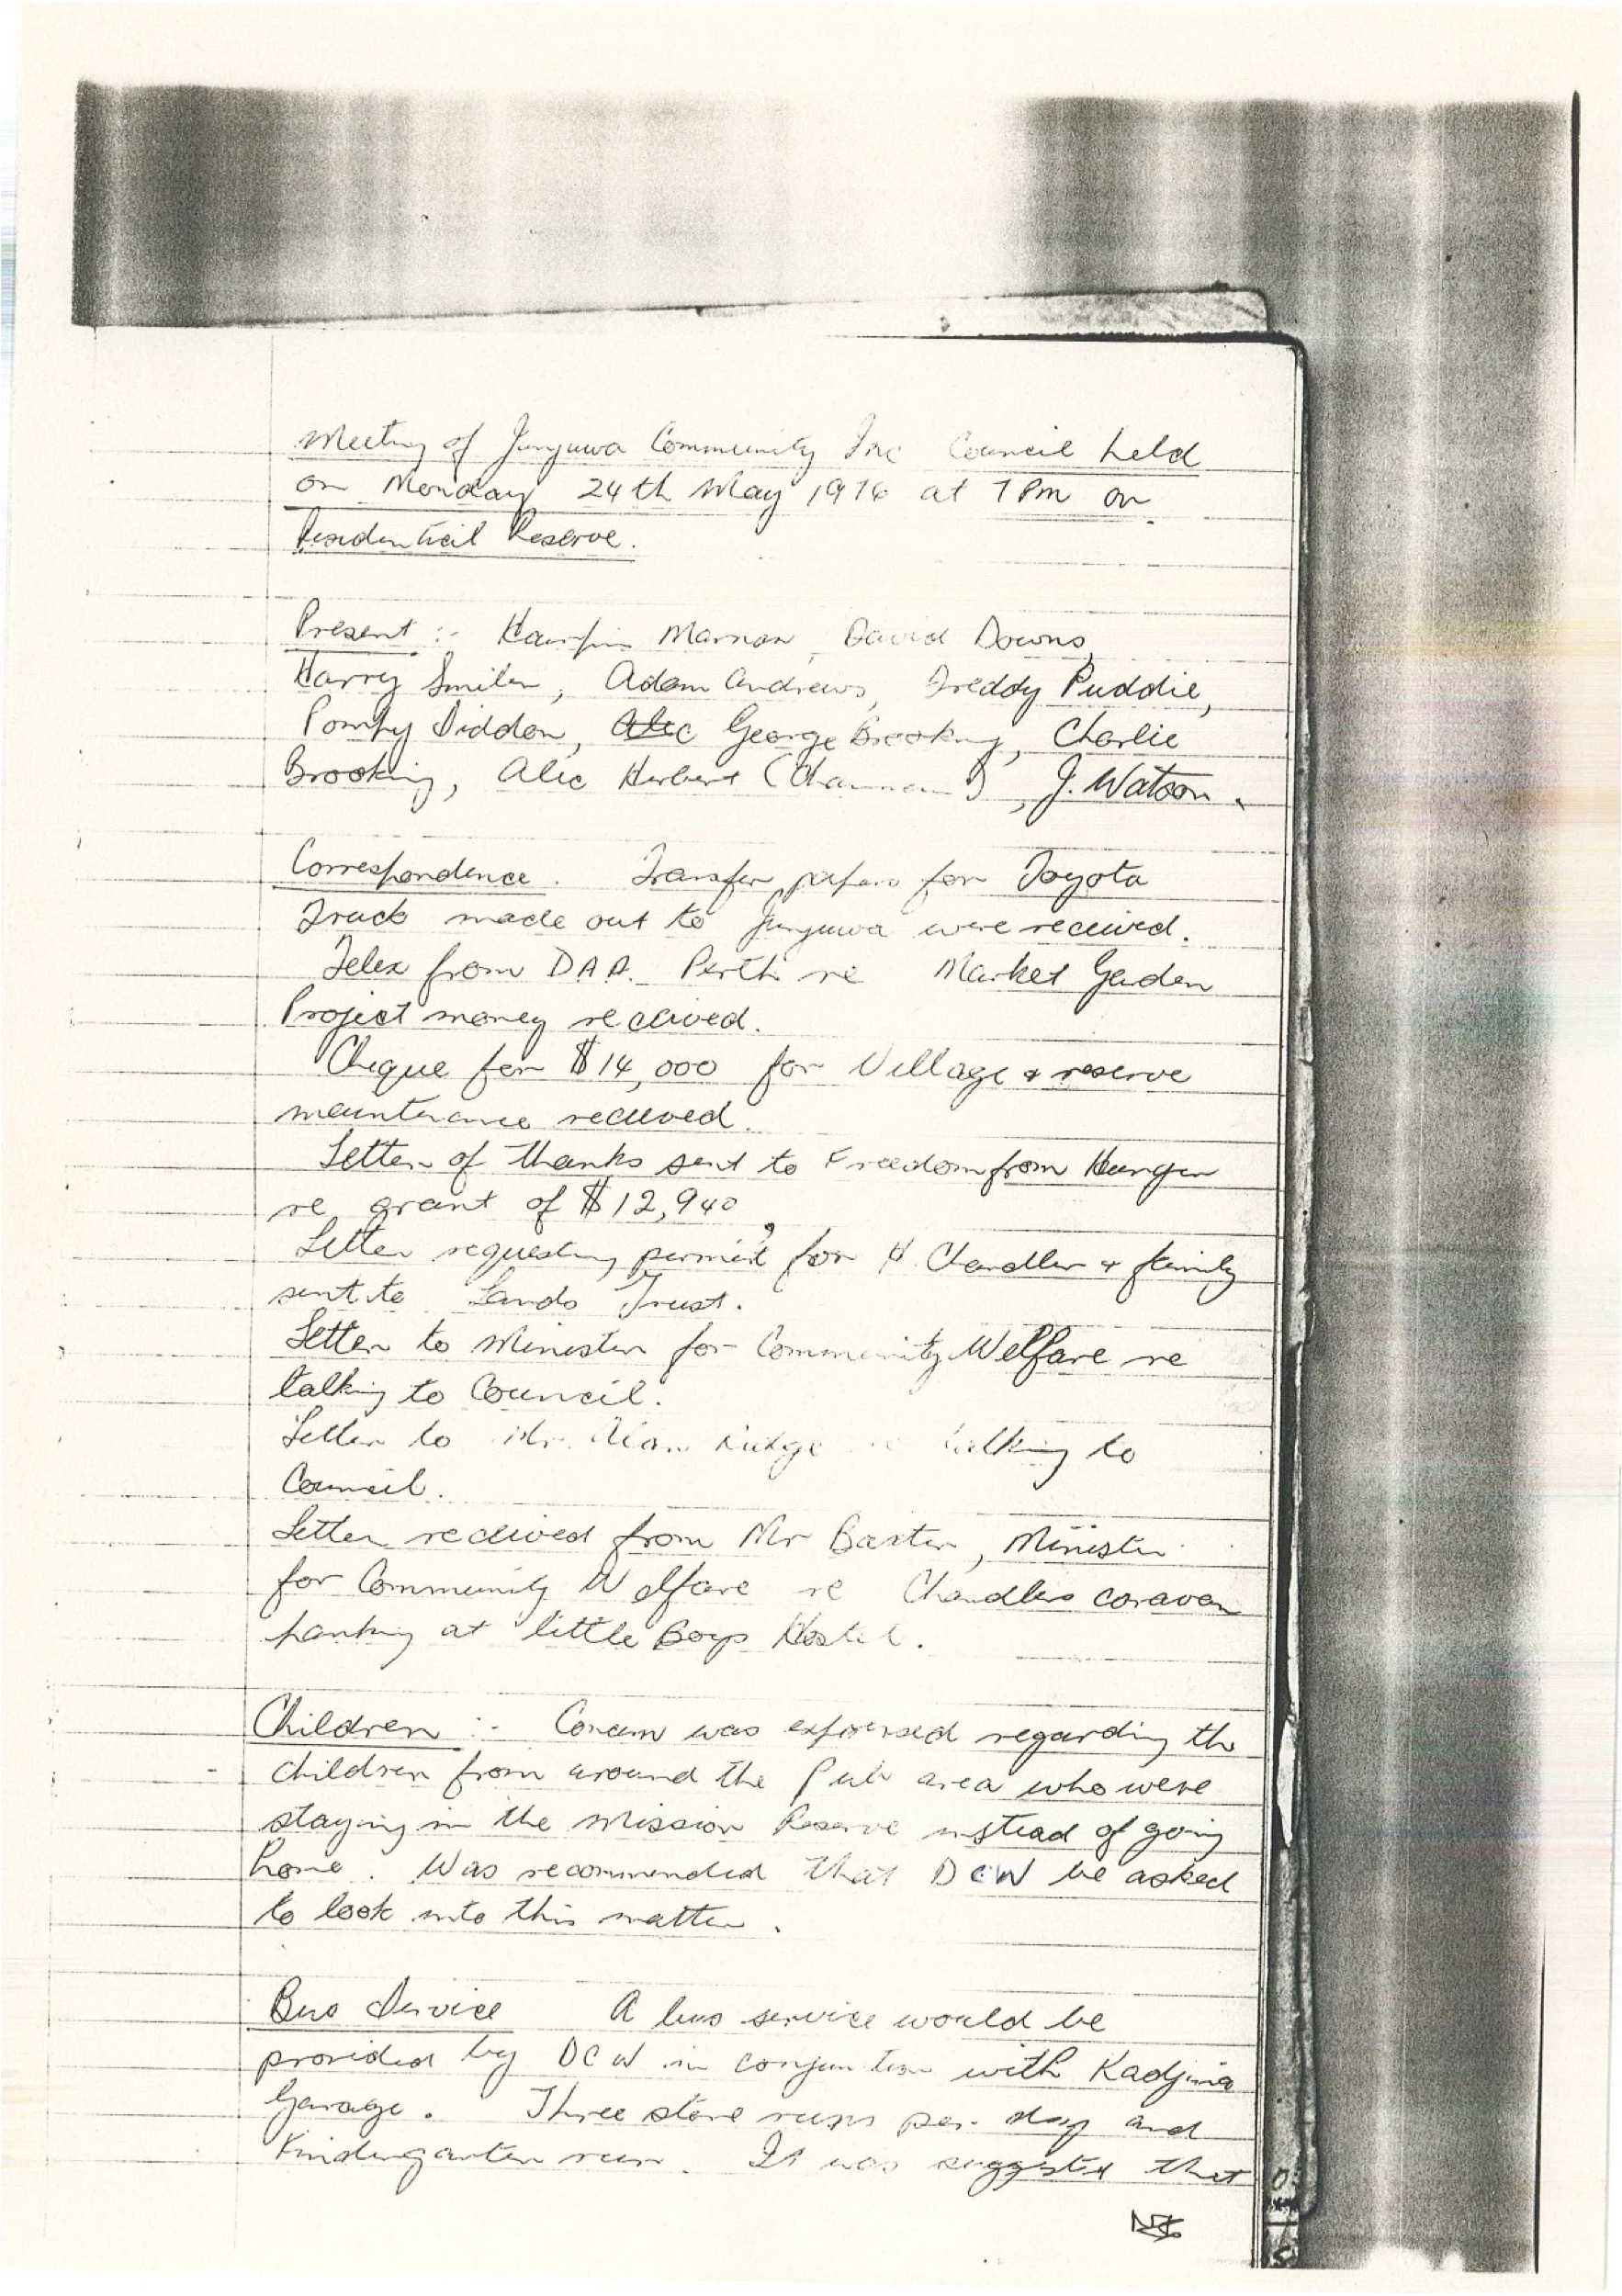 Meeting of Junjuwa Community Inc Council held
on Monday 24th May 1976 at 7 PM on
Residential Reserve.
Present :- Marnon, David Downs,
Harry Smiler, Adam Andrews, Freddy Puddie,
Pompy Siddon, Alec George Brooking, Charlie
Brooking, Alec Herbert (Chairman), J. Watson.
Correspondence. Transfer papers for Toyota
Truck made out to Junjuwa were received.
Telex from D.A.A. Perth re Market Garden
Project money received.
Cheque for $14,000 for Village & reserve
maintenance received.
Letter of thanks sent to Freedom from Hunger
re grant of $12,940
Letter requesting permit for H. Chandler & family
sent to Lands Trust.
Letter to Minister for Community Welfare re
talking to Council.
Letter to Mr. Alan Ridge re talking to
Council.
Letter received from Mr Baxter, Minister
for Community Welfare re Chandlers caravan
parking at little Boys Hostel.
Children :- Concern was expressed regarding the
children from around the Pub area who were
staying in the Mission Reserve instead of going
home. Was recommended that DCW be asked
to look into this matter.
Bus Service A bus service would be
provided by DCW in conjunction with Kadjina
Garage. Three store runs per day and
Kindergarten run. It was suggested that